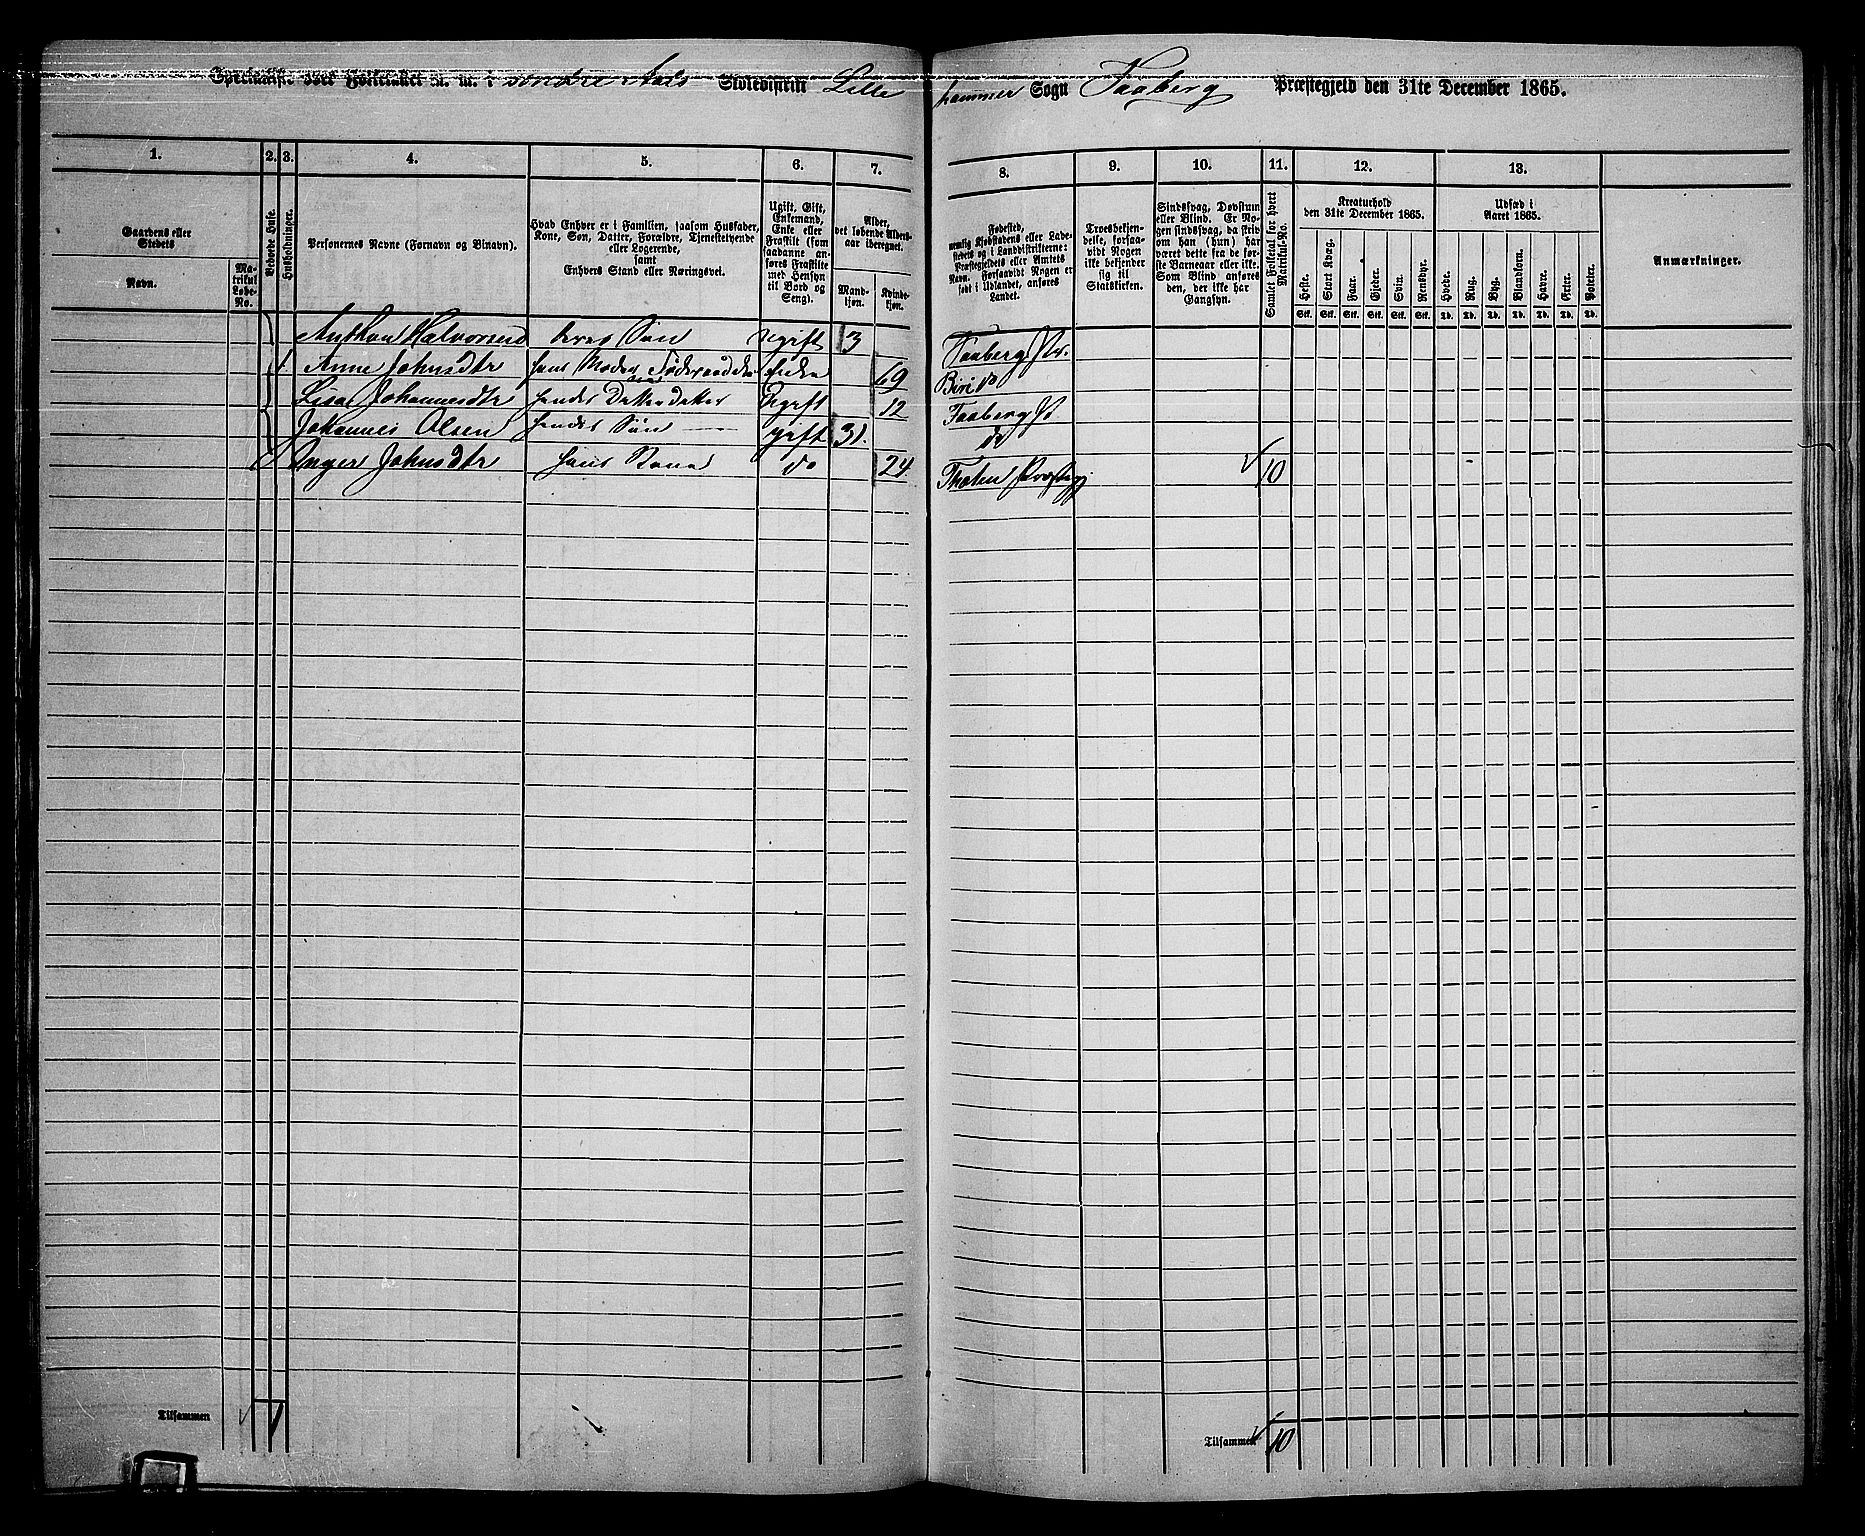 Specialliste over Folketallet m. m. i søndre Aals Skoledistrikt Lille hammer Sogn Faaberg Præstegjeld den 31te December 1865.
1. 2. 3. 4. 5. 6. 7. 8. 9. 10. 11. 12. 13.
Gaardens eller Stedets
Navn.
Matrikul Løbe-No.
Beboede Huse.
Husholdninger.
Personernes Navne (Fornavn og Binavn).
Hvad Enhver er i Familien, saasom Husfader, Kone, Søn, Datter, Forældre, Tjenestetyende eller Logerende, samt Enhvers Stand eller Næringsvei.
Ugift, Gift, Enkemand, Enke eller Fraskilt (som saadanne anføres Fraskilte med Hensyn til Bord og Seng).
Alder, det løbende Aldersaar iberegnet.
Mandkjøn.
Kvindekjøn.
Fødested, nemlig Kjøbstadens eller Ladestedets og i Landdistrikterne: Præstegjeldets eller Amtets Navn. Forsaavidt Nogen er født i Udlandet, anføres Landet.
Troesbekjendelse, forsaavidt Nogen ikke bekjender sig til Statskirken.
Sindssvag, Døvstum eller Blind. Er Nogen sindssvag, da skrives om han (hun) har været dette fra de første Barneaar eller ikke. Som Blind anføres den, der ikke har Gangsyn.
Samlet Folketal for hvert Matrikul-No.
Kreaturhold den 31te December 1865.
Heste. Stort Kvæg. Faar. Gjeder. Svin. Rensdyr.
Stk. Stk. Stk. Stk. Stk. Stk.
Udsæd i Aaret 1865.
Hvede. Rug. Byg. Blandkorn. Havre. Erter. Poteter.
Td. Td. Td. Td. Td. Td. Td.
Anmærkninger.
Halvorsen deres Søn Ugift 3 Faaberg Pr.
1 Anne Johnsdtr hans Moder Føderaad Enke 69 Biri do
Lisa Johannesdtr hendes Datterdatter Ugift 12 Faaberg
Johannes Olsen hendes Søn gift 31. do
Inger Johnsdtr hans Kone do 24 Thoten Præstegj 10
Tilsammen 1
Tilsammen 10